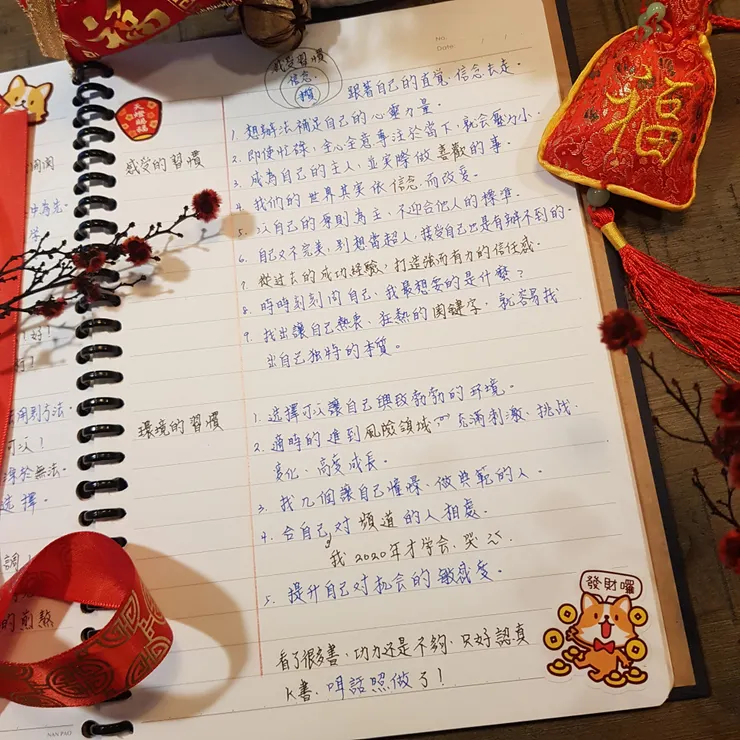 福
感受習慣
信念
No.
Date: / /
跟著自己的直覺、信念去走。
天燈賜福
感受的習慣
1. 想辦法補足自己的心靈力量。
2. 即使忙碌，全心全意專注於當下，就会壓力小。
3. 成為自己的主人，並实際做喜歡的事。
4. 我们的世界其实依信念而改变。
5. 以自己的原則為主，不迎合他人的標準。
6. 自己又不完美，別想當超人，接受自己也是有辦不到的。
7. 從过去的成功経驗，打造強而有力的信任感。
8. 時時刻刻问自己，我最想要的是什麼？
9. 找出讓自己熱衷、狂熱的関鍵字，就容易找
出自己独特的本質。
環境的習慣
1. 选擇可以讓自己興致勃勃的环境。
2. 適時的進到風險領域，充滿刺激、挑战
变化、高度成長。
3. 找几個讓自己憧憬、做典範的人。
4. 合自己对頻道的人相處。
我2020年才学会、哭
5. 提升自己对机会的敏感度。
看了很多書，功力还是不夠，只好認真
K書、叫話照做了！
發財囉
福
NAN PAO